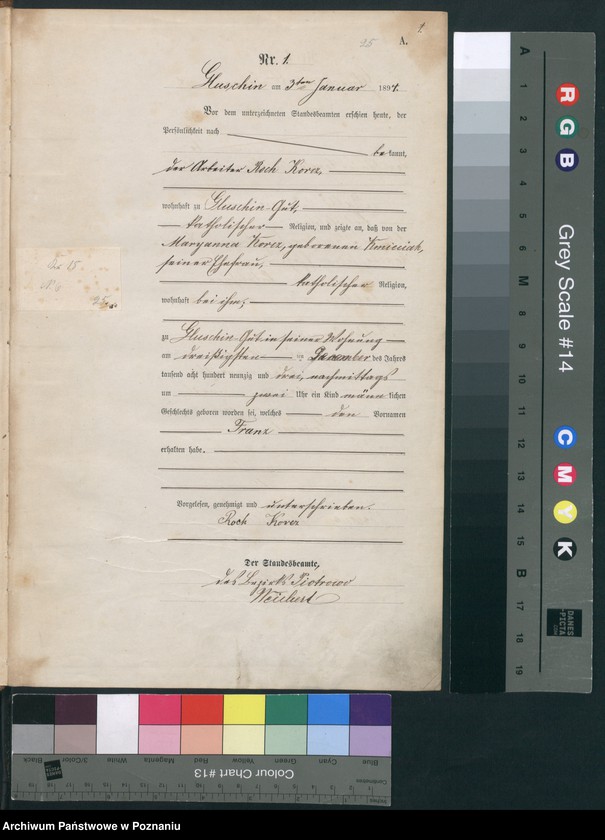 1
25
A.
Nr. 1.
Gluschin am 3ten Januar 1894.
Vor dem unterzeichneten Standesbeamten erschien heute, der
Persönlichkeit nach
be kannt,
der Arbeiter Roch Korcz,
wohnhaft zu Gluschin-Gut,
katholischer Religion, und zeigte an, daß von der
Maryanna Korcz, geborenen
seiner Ehefrau,
katholischer Religion,
wohnhaft bei ihm,
zu Gluschin-Gut in seiner Wohnung
am dreißigsten December des Jahres
tausend acht hundert neunzig und drei, nachmittags
um zwei Uhr ein Kind männ lichen
Geschlechts geboren worden sei, welches den Vornamen
Franz
erhalten habe.
Vorgelesen, genehmigt und unterschrieben.
Roch Korcz
Der Standesbeamte,
des Bezirks Piotrowo
A
1
2
3
4
5
6
M
8
9
10
11
12
13
14
15
B
17
18
19
R
G
B
Grey Scale #14
C
M
Y
K
DANES
PICTA
.COM
Colour Chart #13
Blue
Cyan
Green
Yellow
Red
Magenta
White
3/Color
Black
Archiwum Państwowe w Poznaniu